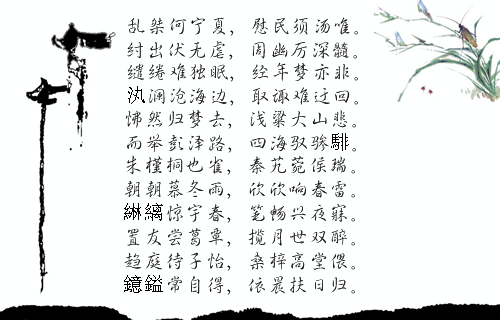 乱桀何宁夏，慰民须汤唯。
纣出伏无虐，周幽厉深髓。
缱绻难独眠，经年梦亦非。
汍澜沧海边，取诹难迂回。
怫然归梦去，浅梁大山悲。
而举彭泽路，四海驭骖騑。
朱槿桐也雀，秦艽菀侯瑞。
朝朝慕冬雨，欣欣响春雷。
綝縭惊宇春，笔畅兴夜寐。
置友尝葛覃，揽月世双醉。
趋庭待子怡，桑梓高堂偎。
鐿鎰常自得，依晨扶日归。